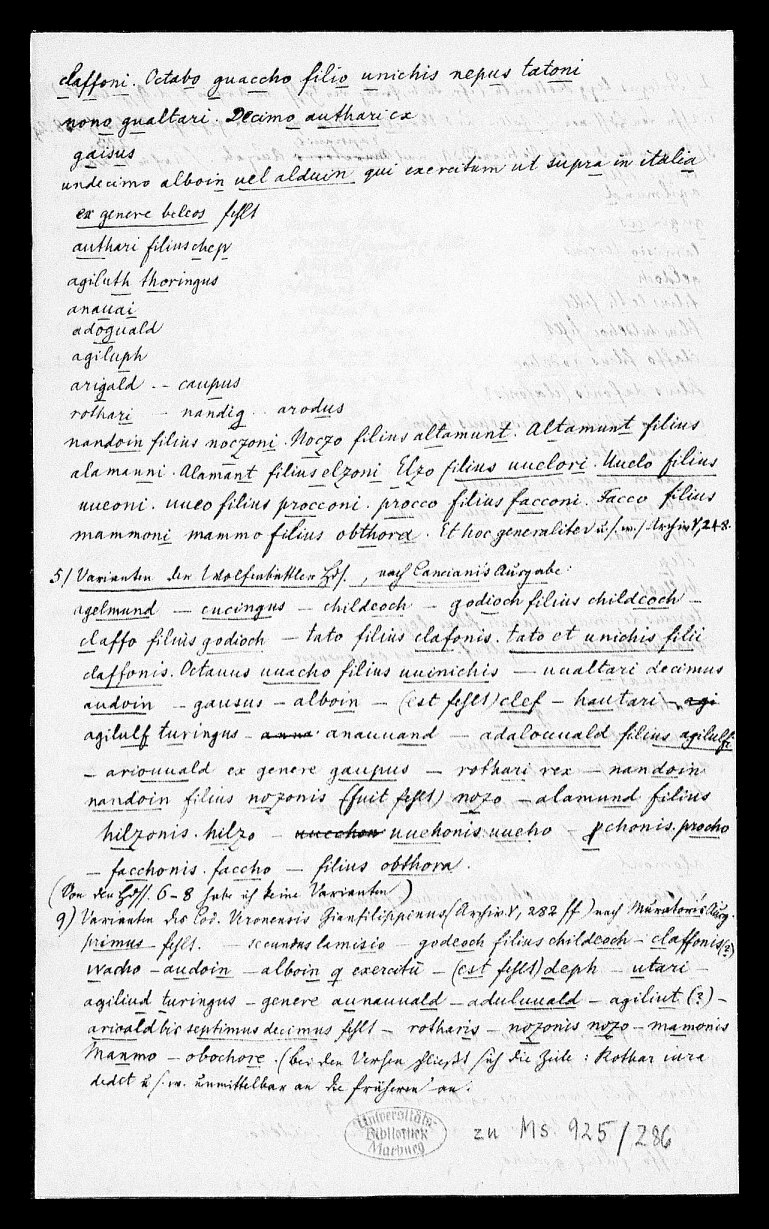 claffoni. Octabo guaccho filio unichis nepus tatoni
nono gualtari. Decimo authari ex
gaisus
undecimo alboin uel alduin qui exercitum ut supra in italia
ex genere beleos fehlt
authari filius chep
agiluth thoringus
anauai
adoguald
agiluph
arigald - caupus
rothari - nandig . arodus
nandoin filius noczoni. Noczo filius altamunt. Altamunt filius
alamanni. Alamant filius elzoni Elzo filius uuelori. Uuelo filius
uueoni. uueo filius procconi. procco filius facconi. Facco filius
mammoni mammo filius obthora. Et hoc generaliter u.s.w./ Archiv V, 248.
5/ Varianten der Wolfenbüttler Hds., nach Cancianis Ausgabe:
agelmund — cucingus — childeoch — godioch filius childeoch —
claffo filius godioch — tato filius clafonis. tato et unichis filii
claffonis. Octauus uuacho filius uuinichis — uualtari decimus
audoin — gausus — alboin — (est fehlt) clef — hautari — agi
agilulf turingus — anna anauuand — adalouuald filius agilulfi
— ariouuald ex genere gaupus — rothari rex — nandoin
nandoin filius nozonis (fuit fehlt) nozo — alamund filius
hilzonis. hilzo — uucchon uuehonis. uueho pchonis. procho
— facchonis. faccho — filius obthora.
(Von den Hdss. 6-8 habe ich keine Varianten)
9) Varianten des Cod. Veronensis Gianfilippinus (Archiv V, 282 ff) nach Muratoris Ausg.
primus fehlt. — secundus lamisio — godeoch filius childeoch — claffonis (?)
wacho — audoin — alboin q exercitū — (est fehlt) deph — utari —
agiliud turingus — genere aunauuald — aduluuald — agiliut (?) —
arioald hic septimus decimus fehlt — rotharis — nozonis nozo — mamonis
Manmo — obochore. (bei den Versen schließt sich die Zeile: Rothar iura
dedet u.s.w. unmittelbar an die früheren an.
Universitäts-
Bibliothek
Marburg
zu Ms. 925/286